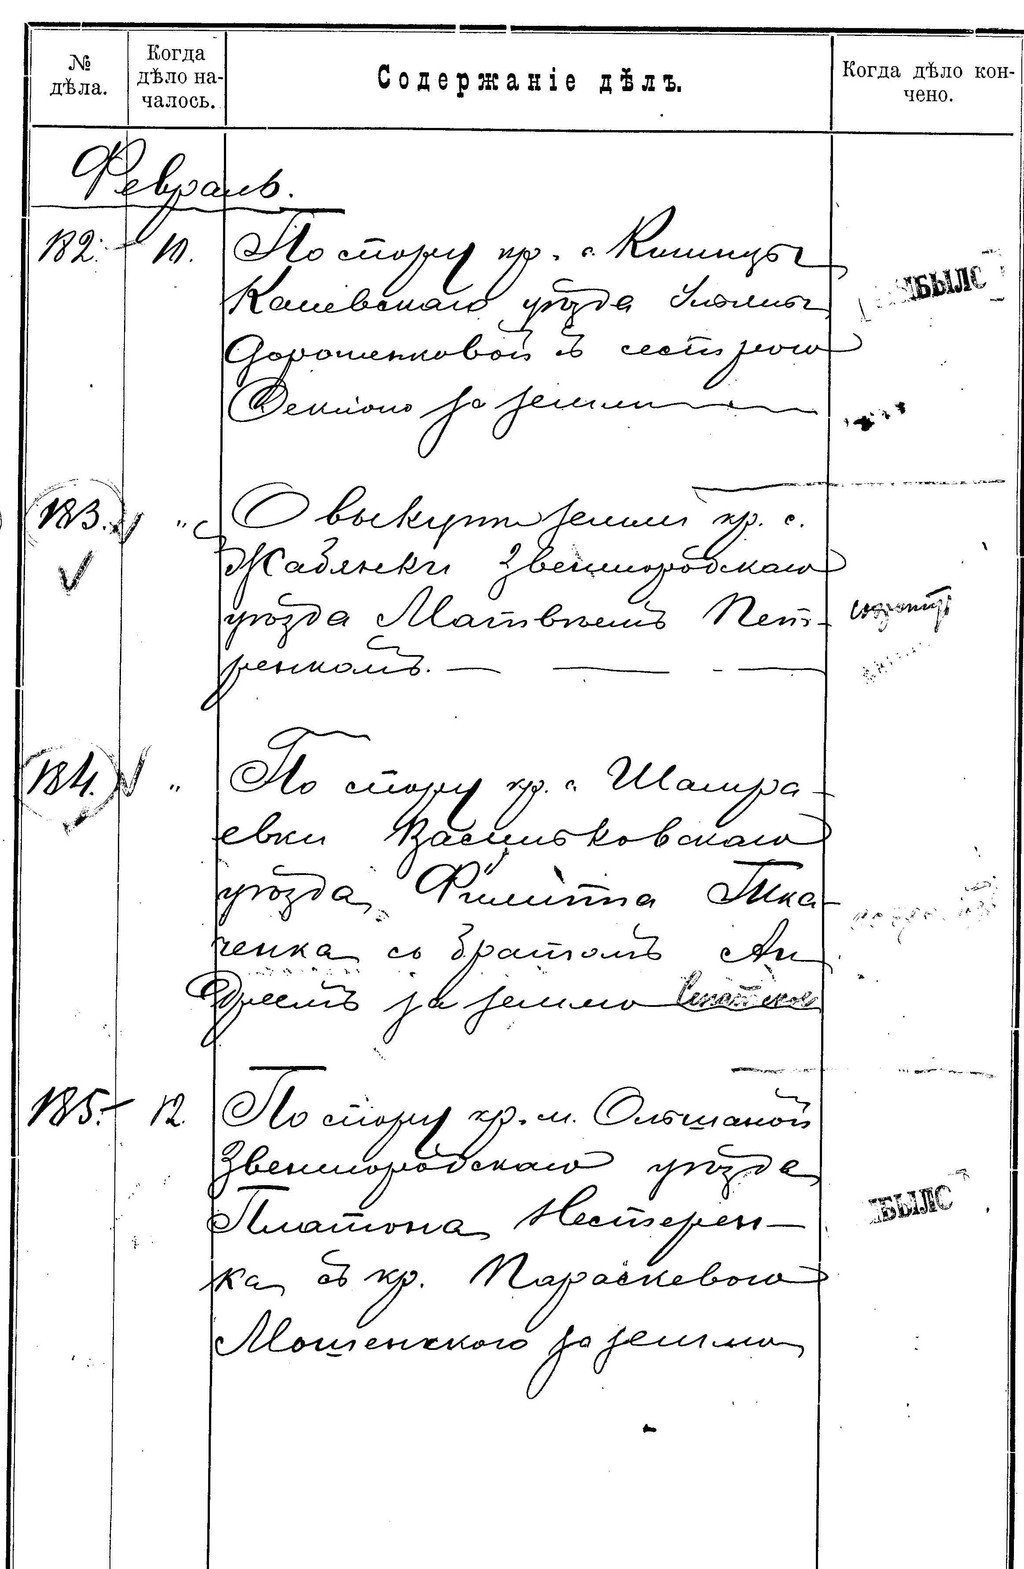 № дѣла.
Когда дѣло на-
чалось.
Содержаніе дѣлъ.
Когда дѣло кон-
чено.
Февраль.
182. 10. По спору кр. с.
Каневскаго уѣзда Ульяны
Дорошенковой съ сестрою
Феклою за землю
ЫБЫЛО
183. " О выкупѣ земли кр. с.
Жабянки Звенигородскаго
уѣзда Матвѣемъ Пет-
ренкомъ.
184. " По спору кр. с. Шамра-
евки Васильковскаго
уѣзда Филиппа Тка-
ченка съ братомъ Ан
дреемъ за землю
185. 12. По спору кр. м. Ольшаной
Звенигородскаго уѣзда
Платона Нестерен-
ка съ кр. Параскевою
Мошенскою за землю
ЫБЫЛО